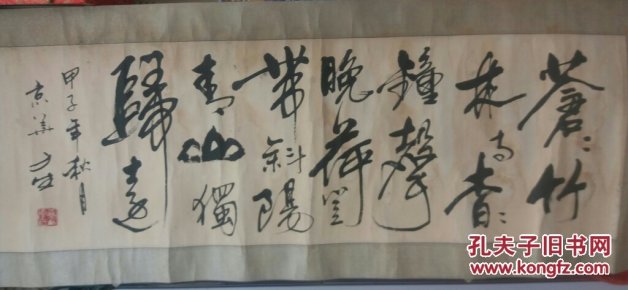 蒼〻竹
林寺杳〻
鐘聲
晚荷笠
帶斜陽
青山獨
歸遠
甲子年秋月
京華
孔夫子旧书网
www.kongfz.com